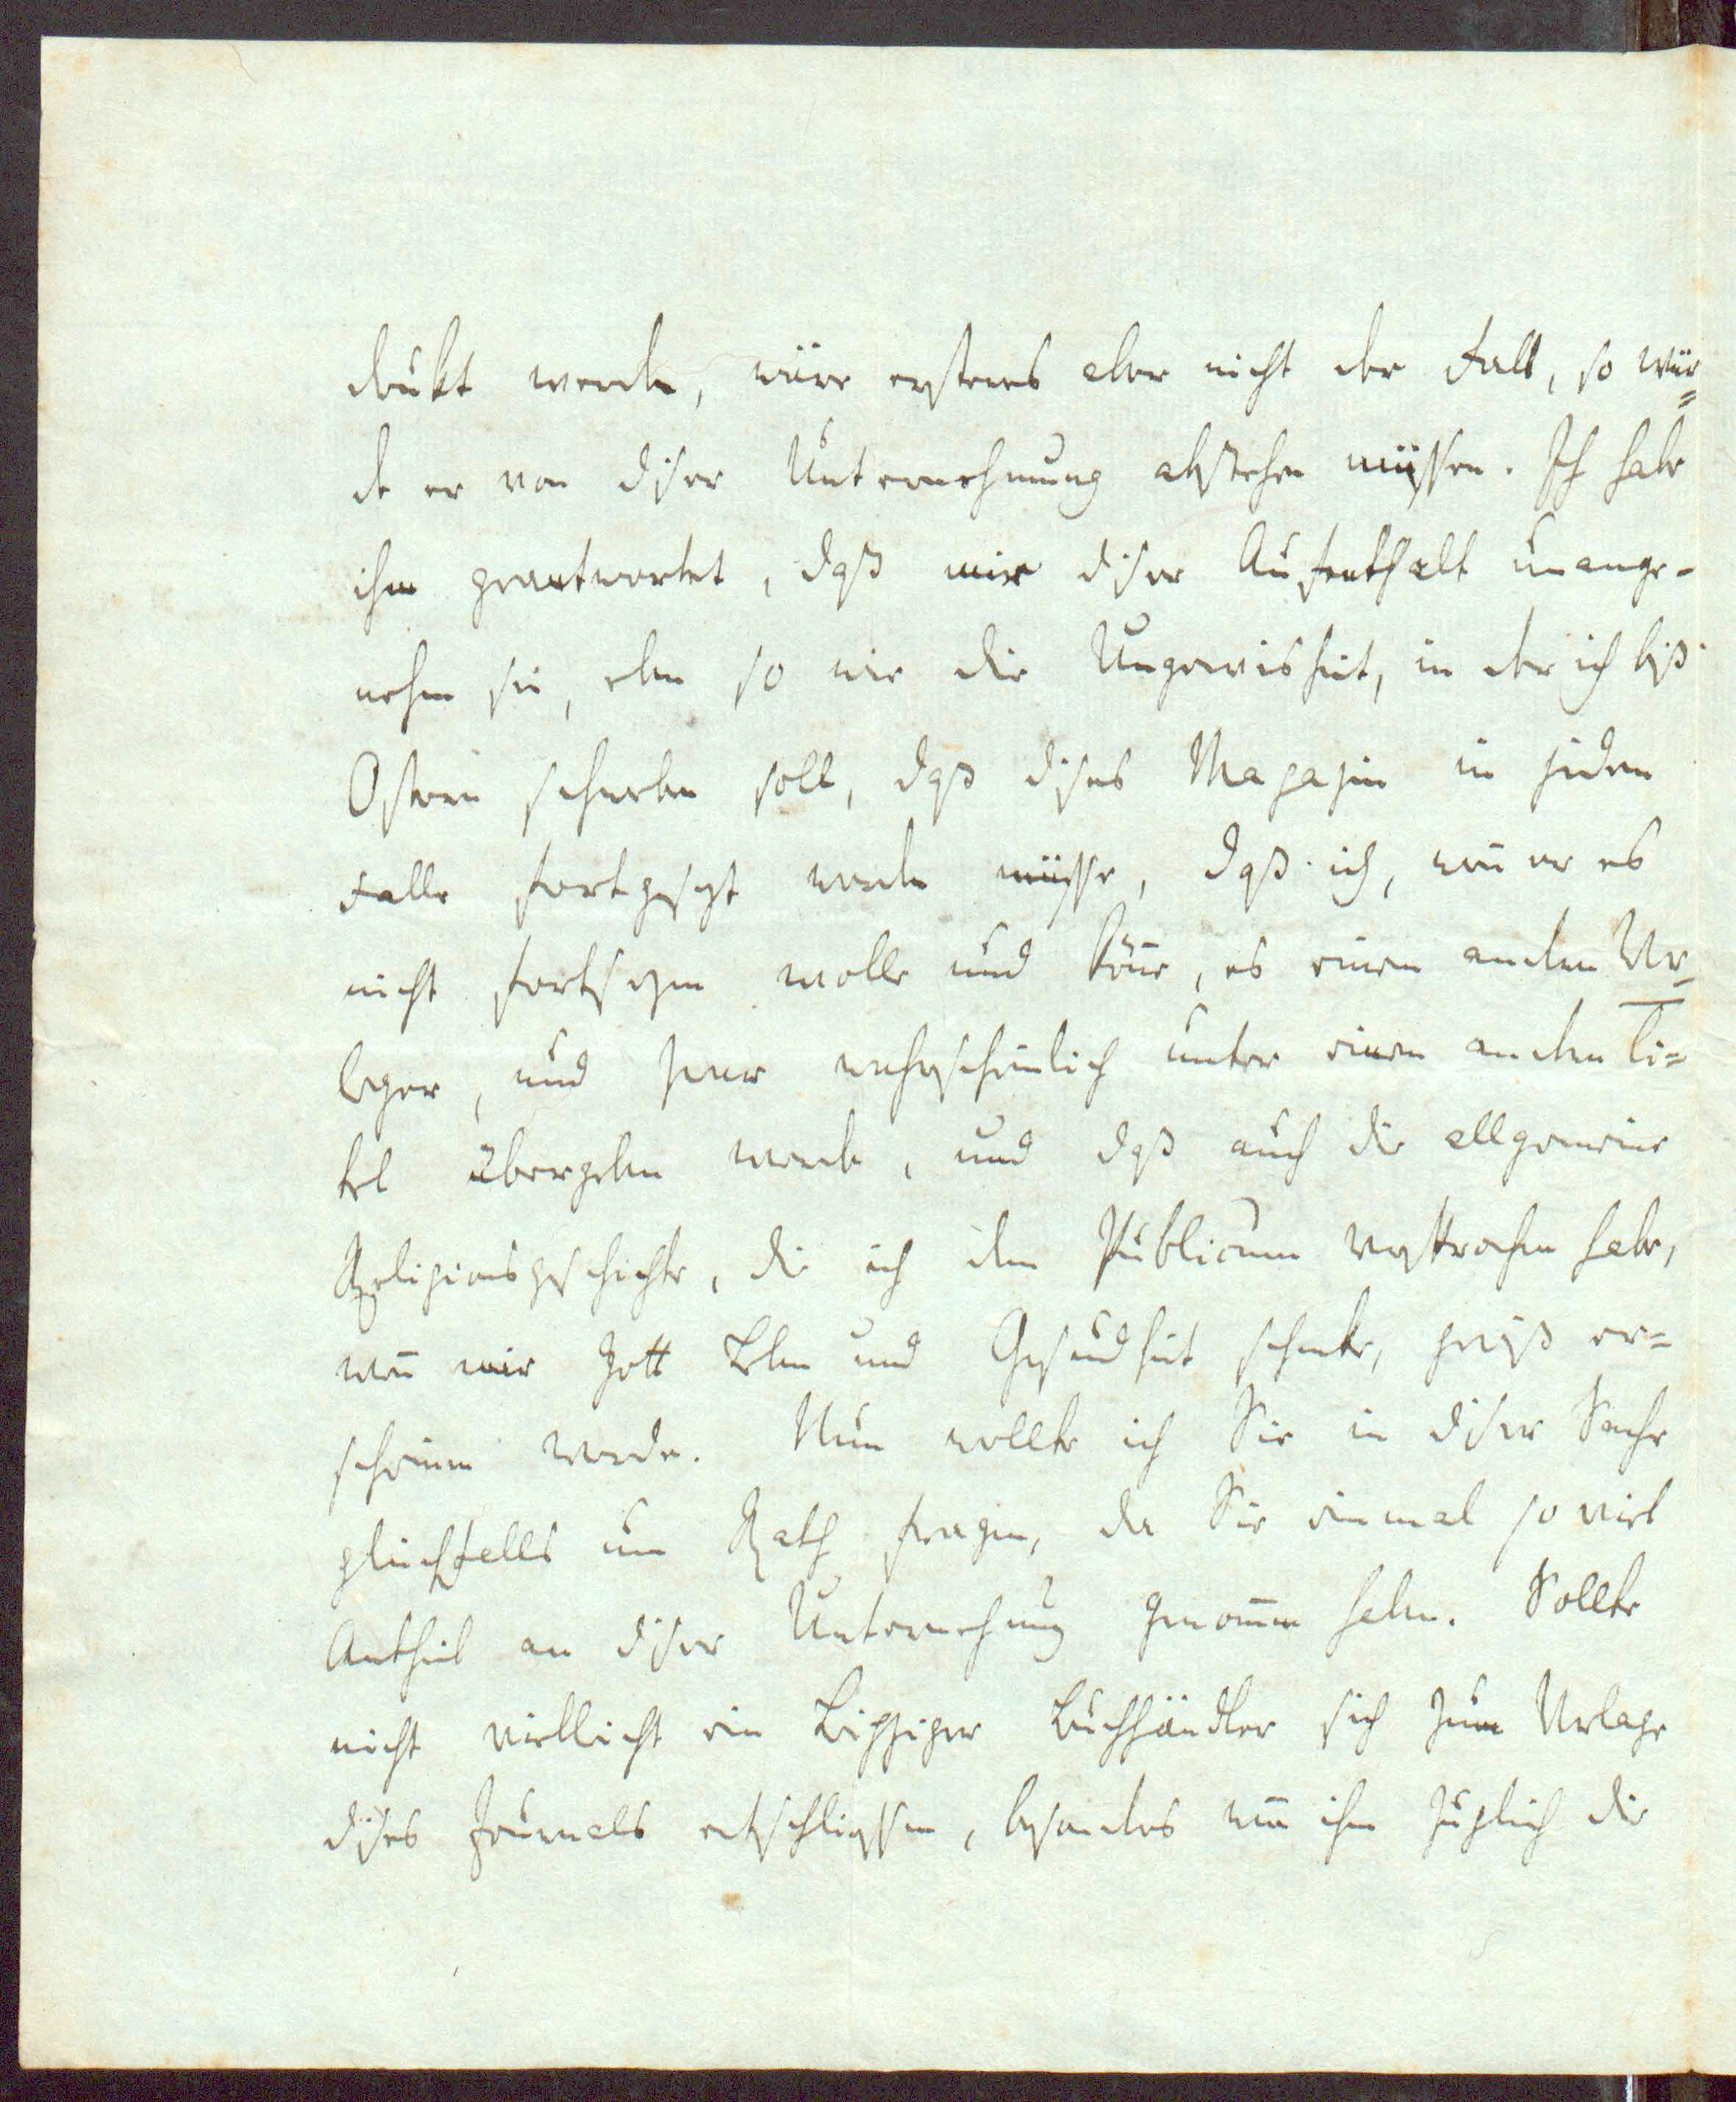 drukt werden, wäre ersteres aber nicht der Fall, so wür=
de er von diser Unternehmung abstehen müssen. Ich habe
ihm geantwortet, daß mir diser Aufenthalt unange-
nehm sei, eben so wie die Ungewisheit, in der ich biß
Ostern schweben soll, daß dises Magazin in jedem
Falle fortgesezt werden müsse, daß ich, weñ er es
nicht fortsezen wolle und köñe, es einem andern Ver=
leger, und zwar wahrscheinlich unter einem andern Ti=
tel übergeben werde, und daß auch die allgemeine
Religionsgeschichte, die ich dem Publicum versprochen habe,
weñ mir Gott Leben und Gesundheit schenke, gewiß er=
scheinen werde. Nun wollte ich Sie in diser Sache
gleichfalls um Rath fragen, da Sie einmal so viel
Antheil an diser Unternehmung genom̄en haben. Sollte
nicht vielleicht ein Leipziger Buchhändler sich zum Verlage
dises Journals entschliessen, besonders weñ ihm zugleich die